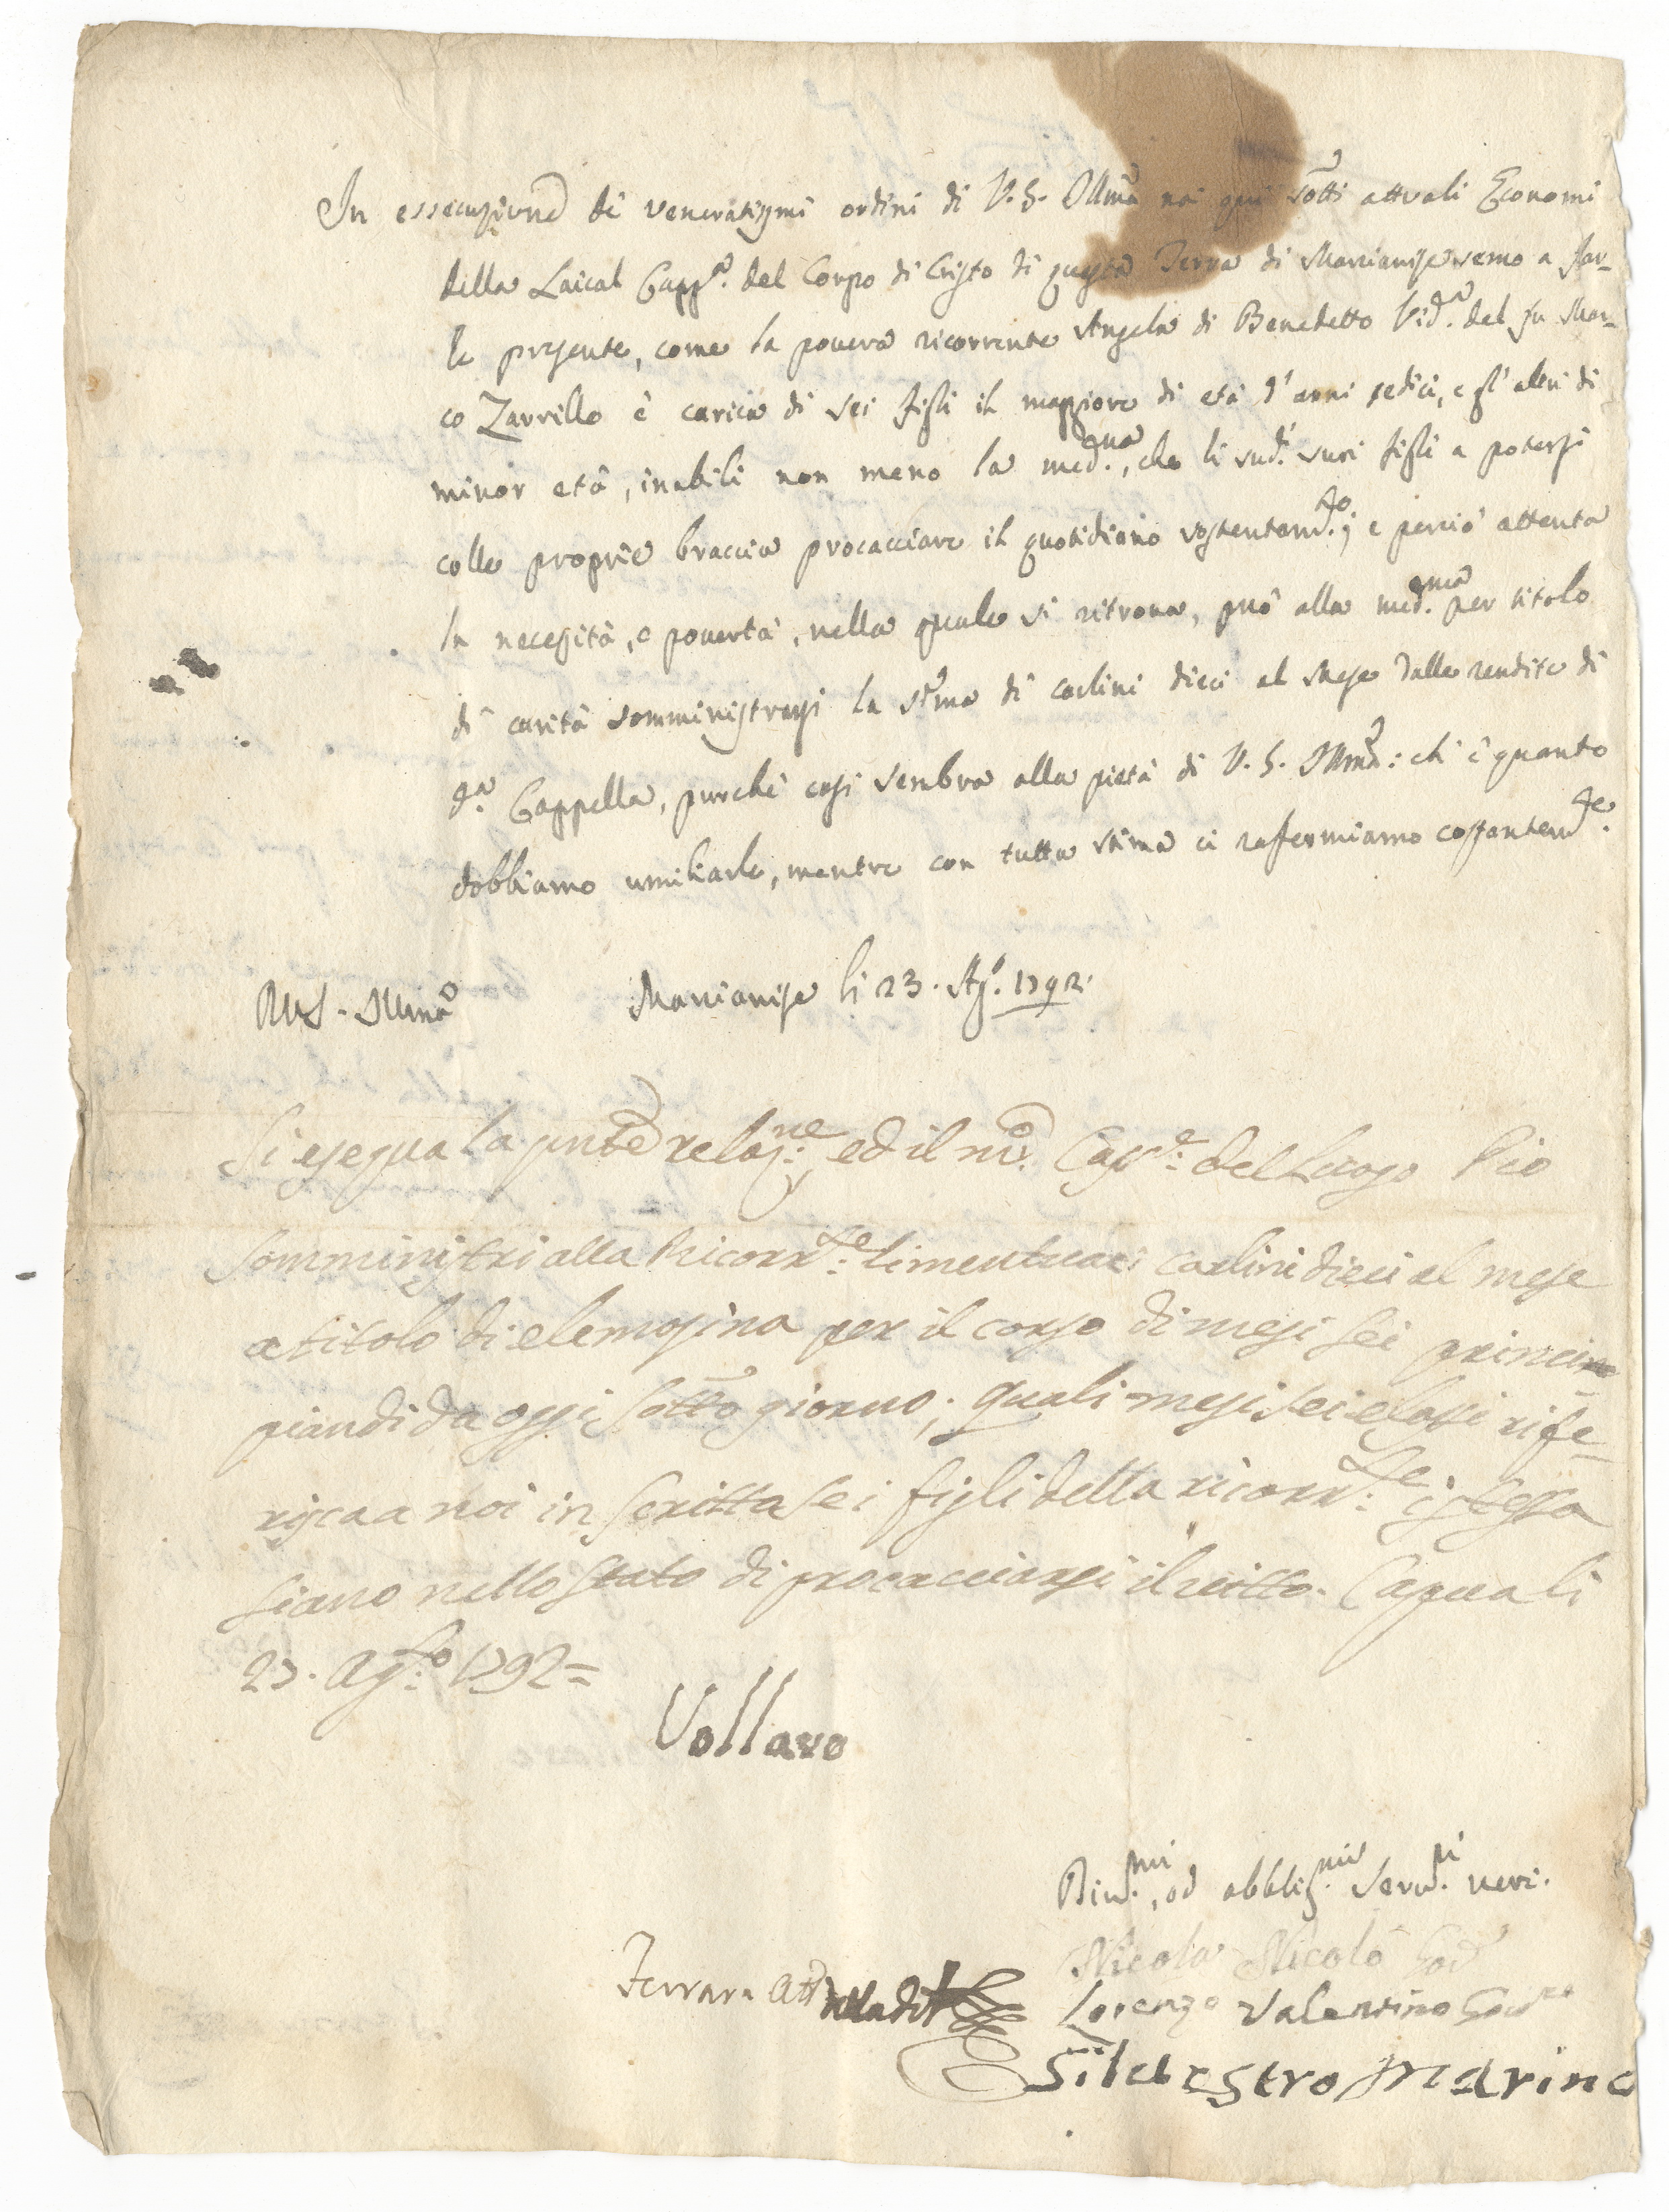 In essecuzione de veneratissimi ordini di V. S. Illma noi qui sotti attuali Economi
della Laical Capp.a del Corpo di Cristo di questa Terra di Marcianise semo a far-
le presente, come la povera ricorrente Angela di Benedetto Vid.a del fu Mar-
co Zarrillo è carica di sei figli il maggiore di età d'anni sedici, e gl'altri di
minor età, inabili non meno la med.ma, che li sud.i suoi figli a potersi
colle proprie braccia procacciare il quotidiano sostentam.to; e perciò attenta
la necessità, e povertà, nella quale si ritrova, può alla med.ma per titolo
di carità somministrarsi la sõma di carlini dieci al mese dalle rendite di
d.a Cappella, purchè così sembra alla pietà di V. S. Illma: ch'è quanto
dobbiamo umiliarle, mentre con tutta stima ci raffermiamo costantem.te.
Di V. S. Illma
Marcianise li 23. Ag.o 1792.
Si esegua la pnte relaz.ne, ed il Cass.e del Luogo Pio
somministri alla Ricorr.te carlini dieci al mese
a titolo di elemosina per il corso di mesi sei princi
piandi da oggi sotto giorno; quali mesi sei elassi rife-
risca a noi in scritta se i figli della ricorr.te istessa
siano nello stato di procacciarsi il vitto. Capua li
27. Ag.to 1792=
Vollaro
Div.mi, ed obblig.mi Serv.ri veri.
Nicola Nicolò
Lorenzo Valentino
Ferrara
Silvestro Marino